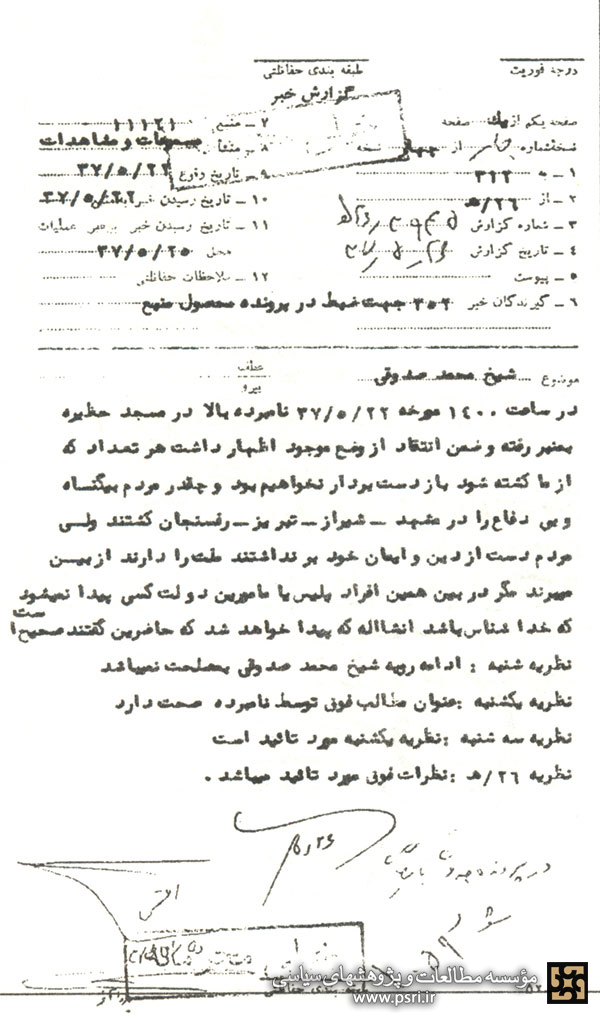 درجه فوریت
طبقه بندی حفاظتی
گزارش خبر
صفحه یکم از یک صفحه
نسخه شماره از چهار نسخه
۱ - به ۳۱۲
۲ - از ۲۶/ه‍
۳ - شماره گزارش
۴ - تاریخ گزارش
۵ - پیوست
۶ - گیرندگان خبر ۳۵۲ جهت ضبط در پرونده محصول منبع
۷ - منبع ۱۱۱۶۱
۸ - منشأ مسموعات و مشاهدات
۹ - تاریخ وقوع ۳۷/۵/۲۲
۱۰ - تاریخ رسیدن خبر ۳۷/۵/۲۲
۱۱ - تاریخ رسیدن خبر برهبر عملیات
محلی ۳۷/۵/۲۵
۱۲ - ملاحظات حفاظتی
موضوع شیخ محمد صدوقی
عطف
پیرو
در ساعت ۱۴۰۰ مورخه ۳۷/۵/۲۲ نامبرده بالا در مسجد حظیره
بمنبر رفته و ضمن انتقاد از وضع موجود اظهار داشت هر تعداد که
از ما کشته شود باز دست بردار نخواهیم بود و چقدر مردم بیگناه
و بی دفاع را در مشهد - شیراز - تبریز - رفسنجان کشتند ولی
مردم دست از دین و ایمان خود بر نداشتند ملت را دارند از بین
میبرند مگر در بین همین افراد پلیس یا مامورین دولت کسی پیدا نمیشود
که خدا شناس باشد انشااله که پیدا خواهد شد که حاضرین گفتند صحیح است
نظریه شنبه : ادامه رویه شیخ محمد صدوقی بمصلحت نمیباشد
نظریه یکشنبه : عنوان مطالب فوق توسط نامبرده صحت دارد
نظریه سه شنبه : نظریه یکشنبه مورد تائید است
نظریه ۲۶/ه‍ : نظرات فوق مورد تائید میباشد .
در پرونده
طبقه بندی حفاظتی
مؤسسه مطالعات و پژوهشهای سیاسی
www.psri.ir